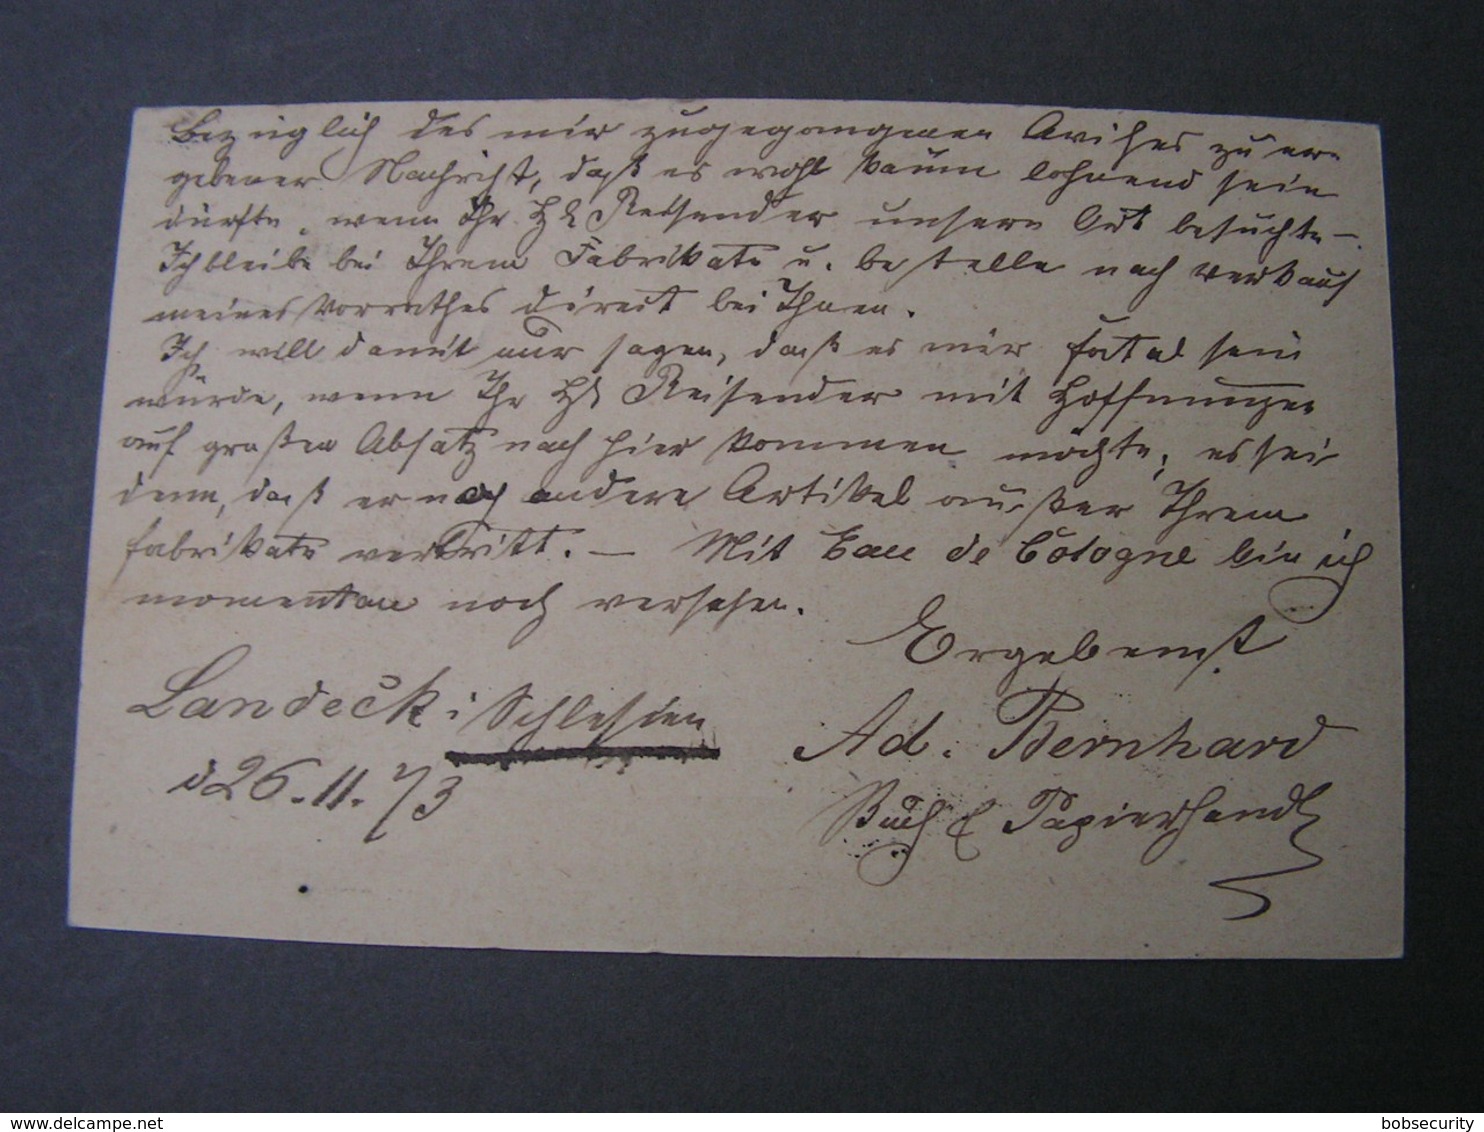 Bezüglich des mir zugegangenen Avises zu er-
gebener Nachricht, daß es wohl kaum lohnend sein
dürfte, wenn Ihr H Reisender unsern Ort besuchte –.
Ich bleibe bei Ihrem Fabrikate u. bestelle nach Verkauf
meines Vorrathes direct bei Ihnen.
Ich will damit nur sagen, daß es mir fatal sein
würde, wenn Ihr H Reisender mit Hoffnungen
auf großen Absatz nach hier kommen möchte, es sei
denn, daß er noch andere Artikel außer Ihrem
Fabrikate vertritt. – Mit Eau de Cologne bin ich
momentan noch versehen.
Ergebenst
Landeck i Schlesien
Ad. Bernhard
d 26.11.73
Buch & Papierhandl
bobsecurity